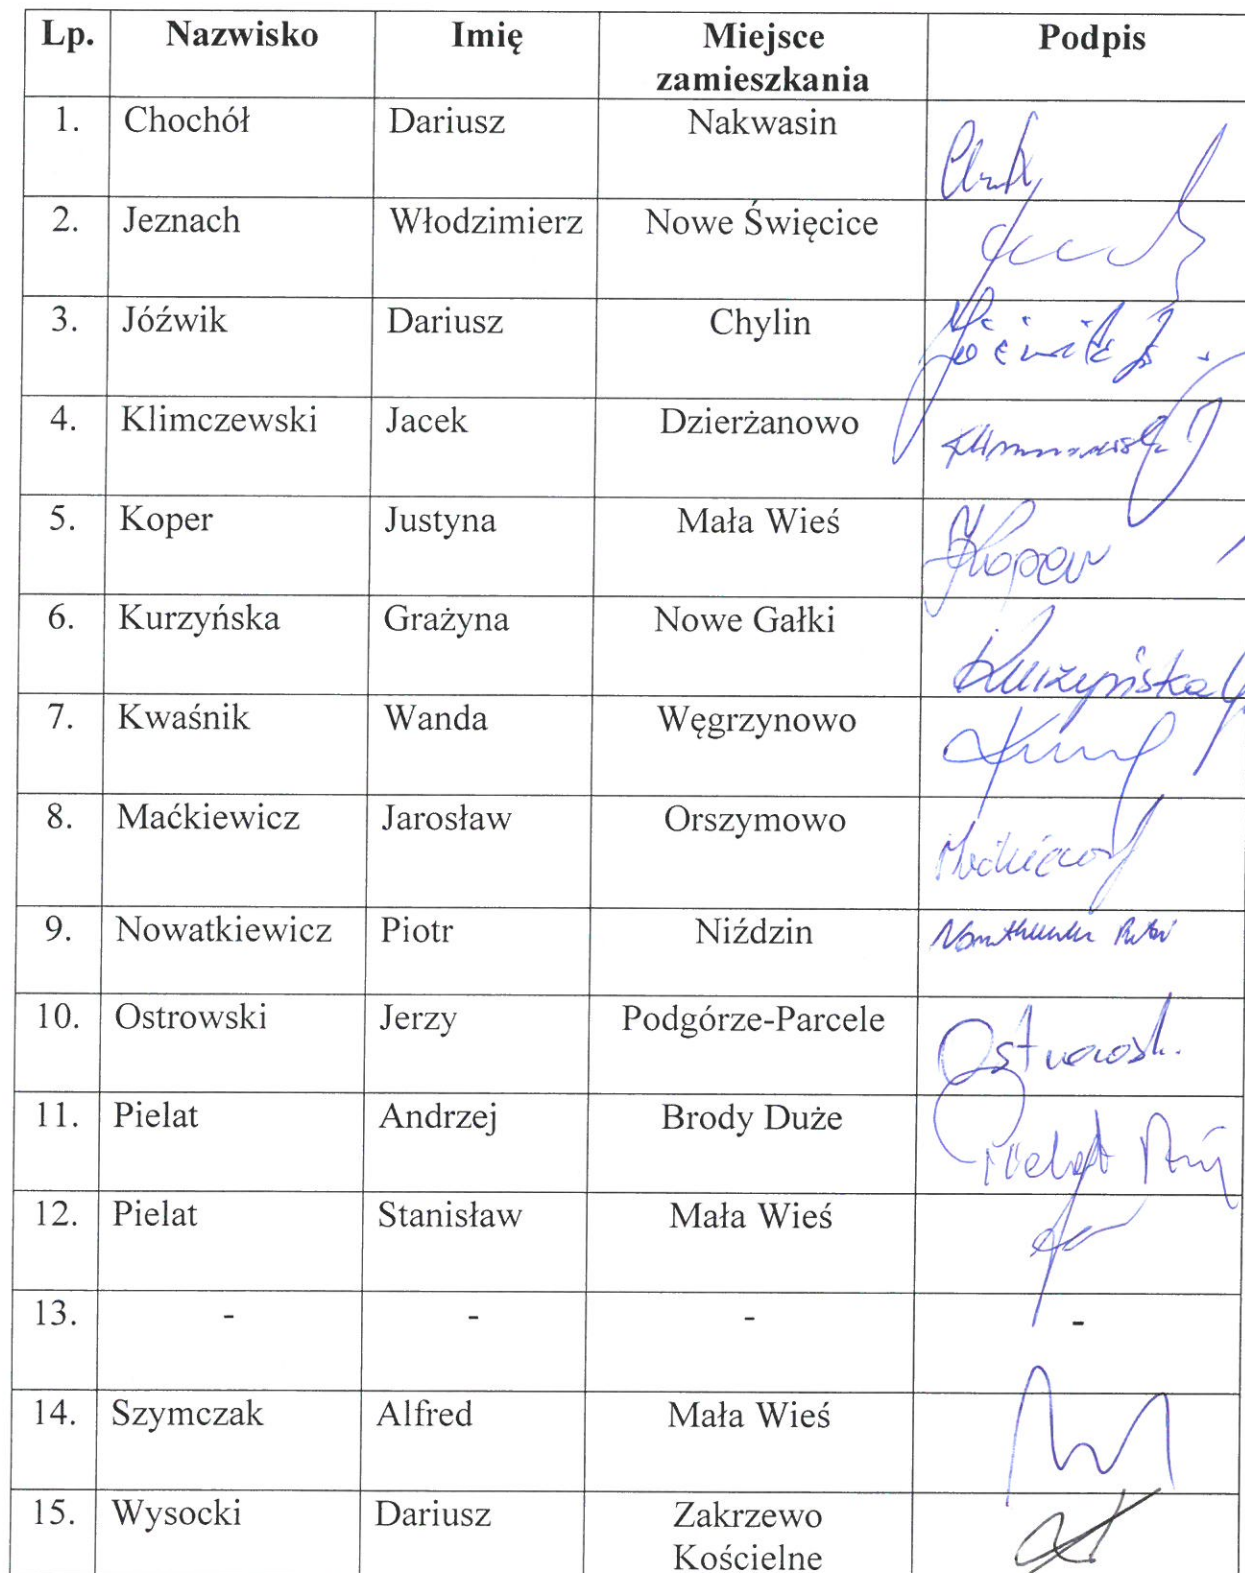 Lp. Nazwisko Imię Miejsce zamieszkania Podpis
1. Chochół Dariusz Nakwasin
2. Jeznach Włodzimierz Nowe Święcice
3. Jóźwik Dariusz Chylin
4. Klimczewski Jacek Dzierżanowo
5. Koper Justyna Mała Wieś Koper
6. Kurzyńska Grażyna Nowe Gałki Kurzyńska
7. Kwaśnik Wanda Węgrzynowo
8. Maćkiewicz Jarosław Orszymowo
9. Nowatkiewicz Piotr Niździn
10. Ostrowski Jerzy Podgórze-Parcele
11. Pielat Andrzej Brody Duże Pielat
12. Pielat Stanisław Mała Wieś
13. - - - -
14. Szymczak Alfred Mała Wieś
15. Wysocki Dariusz Zakrzewo Kościelne